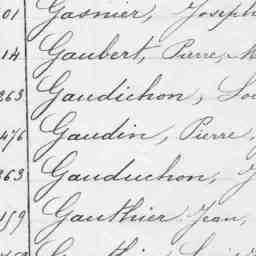 01 Gasnier, Joseph
14 Gaubert, Pierre, M
363 Gaudichon, Lou
476 Gaudin, Pierre,
363 Gauduchon, J
159 Gauthier Jean,